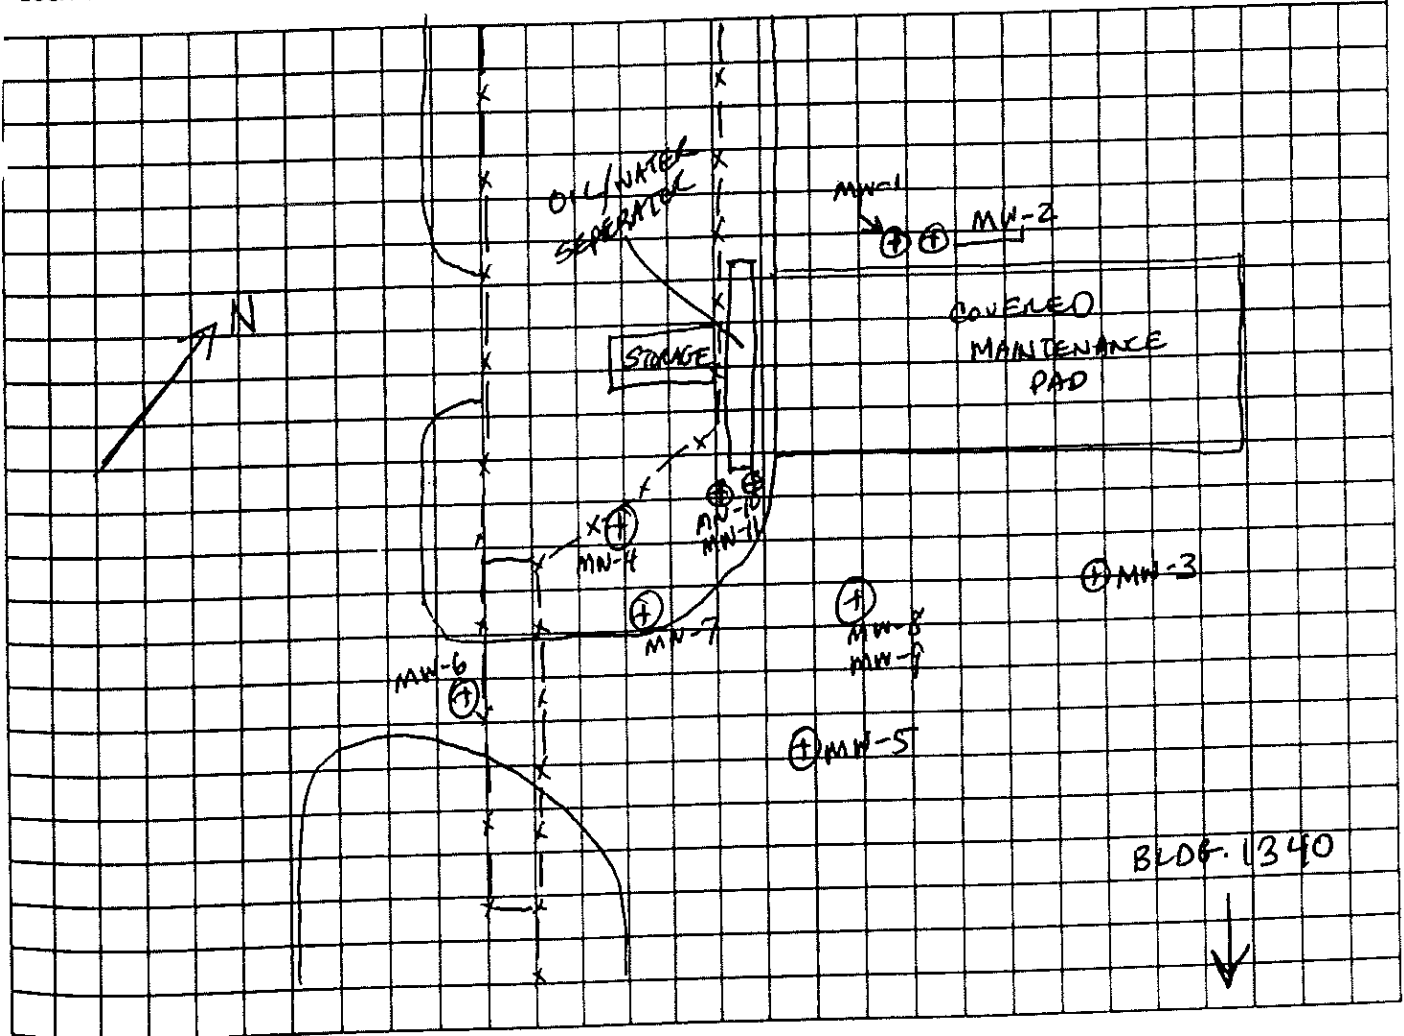 OIL/WATER
SEPERATOR
MW-1
MW-2
N
STORAGE
COVERED
MAINTENANCE
PAD
MW-10
MW-11
MW-4
MW-3
MW-7
MW-8
MW-9
MW-6
MW-5
BLDG. 1340